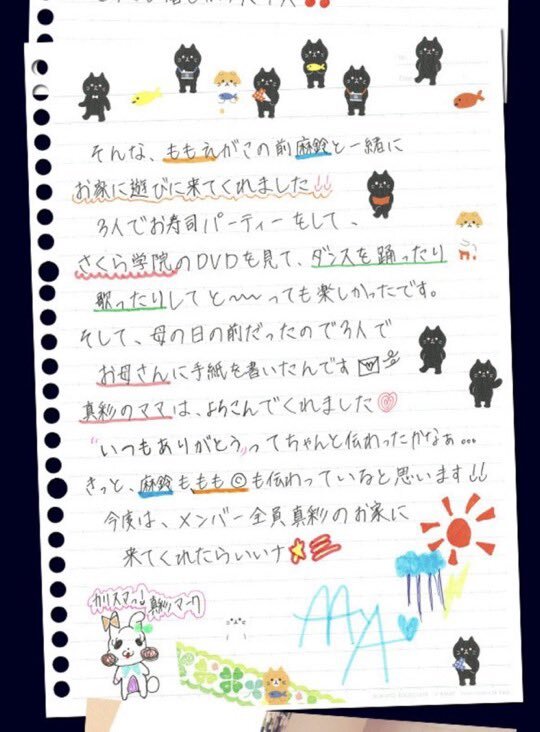 そんな、ももえがこの前麻鈴と一緒に
お家に遊びに来てくれました!!
3人でお寿司パーティーをして、
さくら学院のDVDを見て、ダンスを踊ったり
歌ったりしてと〜〜っても楽しかったです。
そして、母の日の前だったので3人で
お母さんに手紙を書いたんです
真彩のママは、よろこんでくれました
"いつもありがとう"ってちゃんと伝わったかなぁ...
きっと、麻鈴もももⓒも伝わっていると思います!!
今度は、メンバー全員真彩のお家に
来てくれたらいいナ
カリスマっ!
真彩マーク
MAAYA